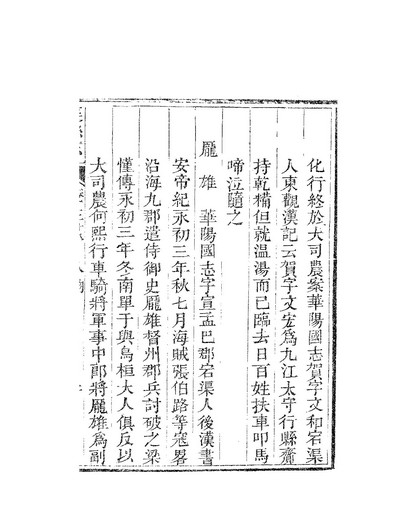 化行終於大司農案華陽國志賀字文和宕渠
人東觀漢記云賀字文宏爲九江太守行縣齎
持乾糒但就温湯而已臨去日百姓扶車叩馬
啼泣隨之
龎雄 華陽國志字宣孟巴郡宕渠人後漢書
安帝紀永初三年秋七月海賊張伯路等寇畧
沿海九郡遣侍御史龎雄督州郡兵討破之梁
慬傳永初三年冬南單于與烏桓大人俱反以
大司農何熙行車騎將軍事中郎將龎雄爲副